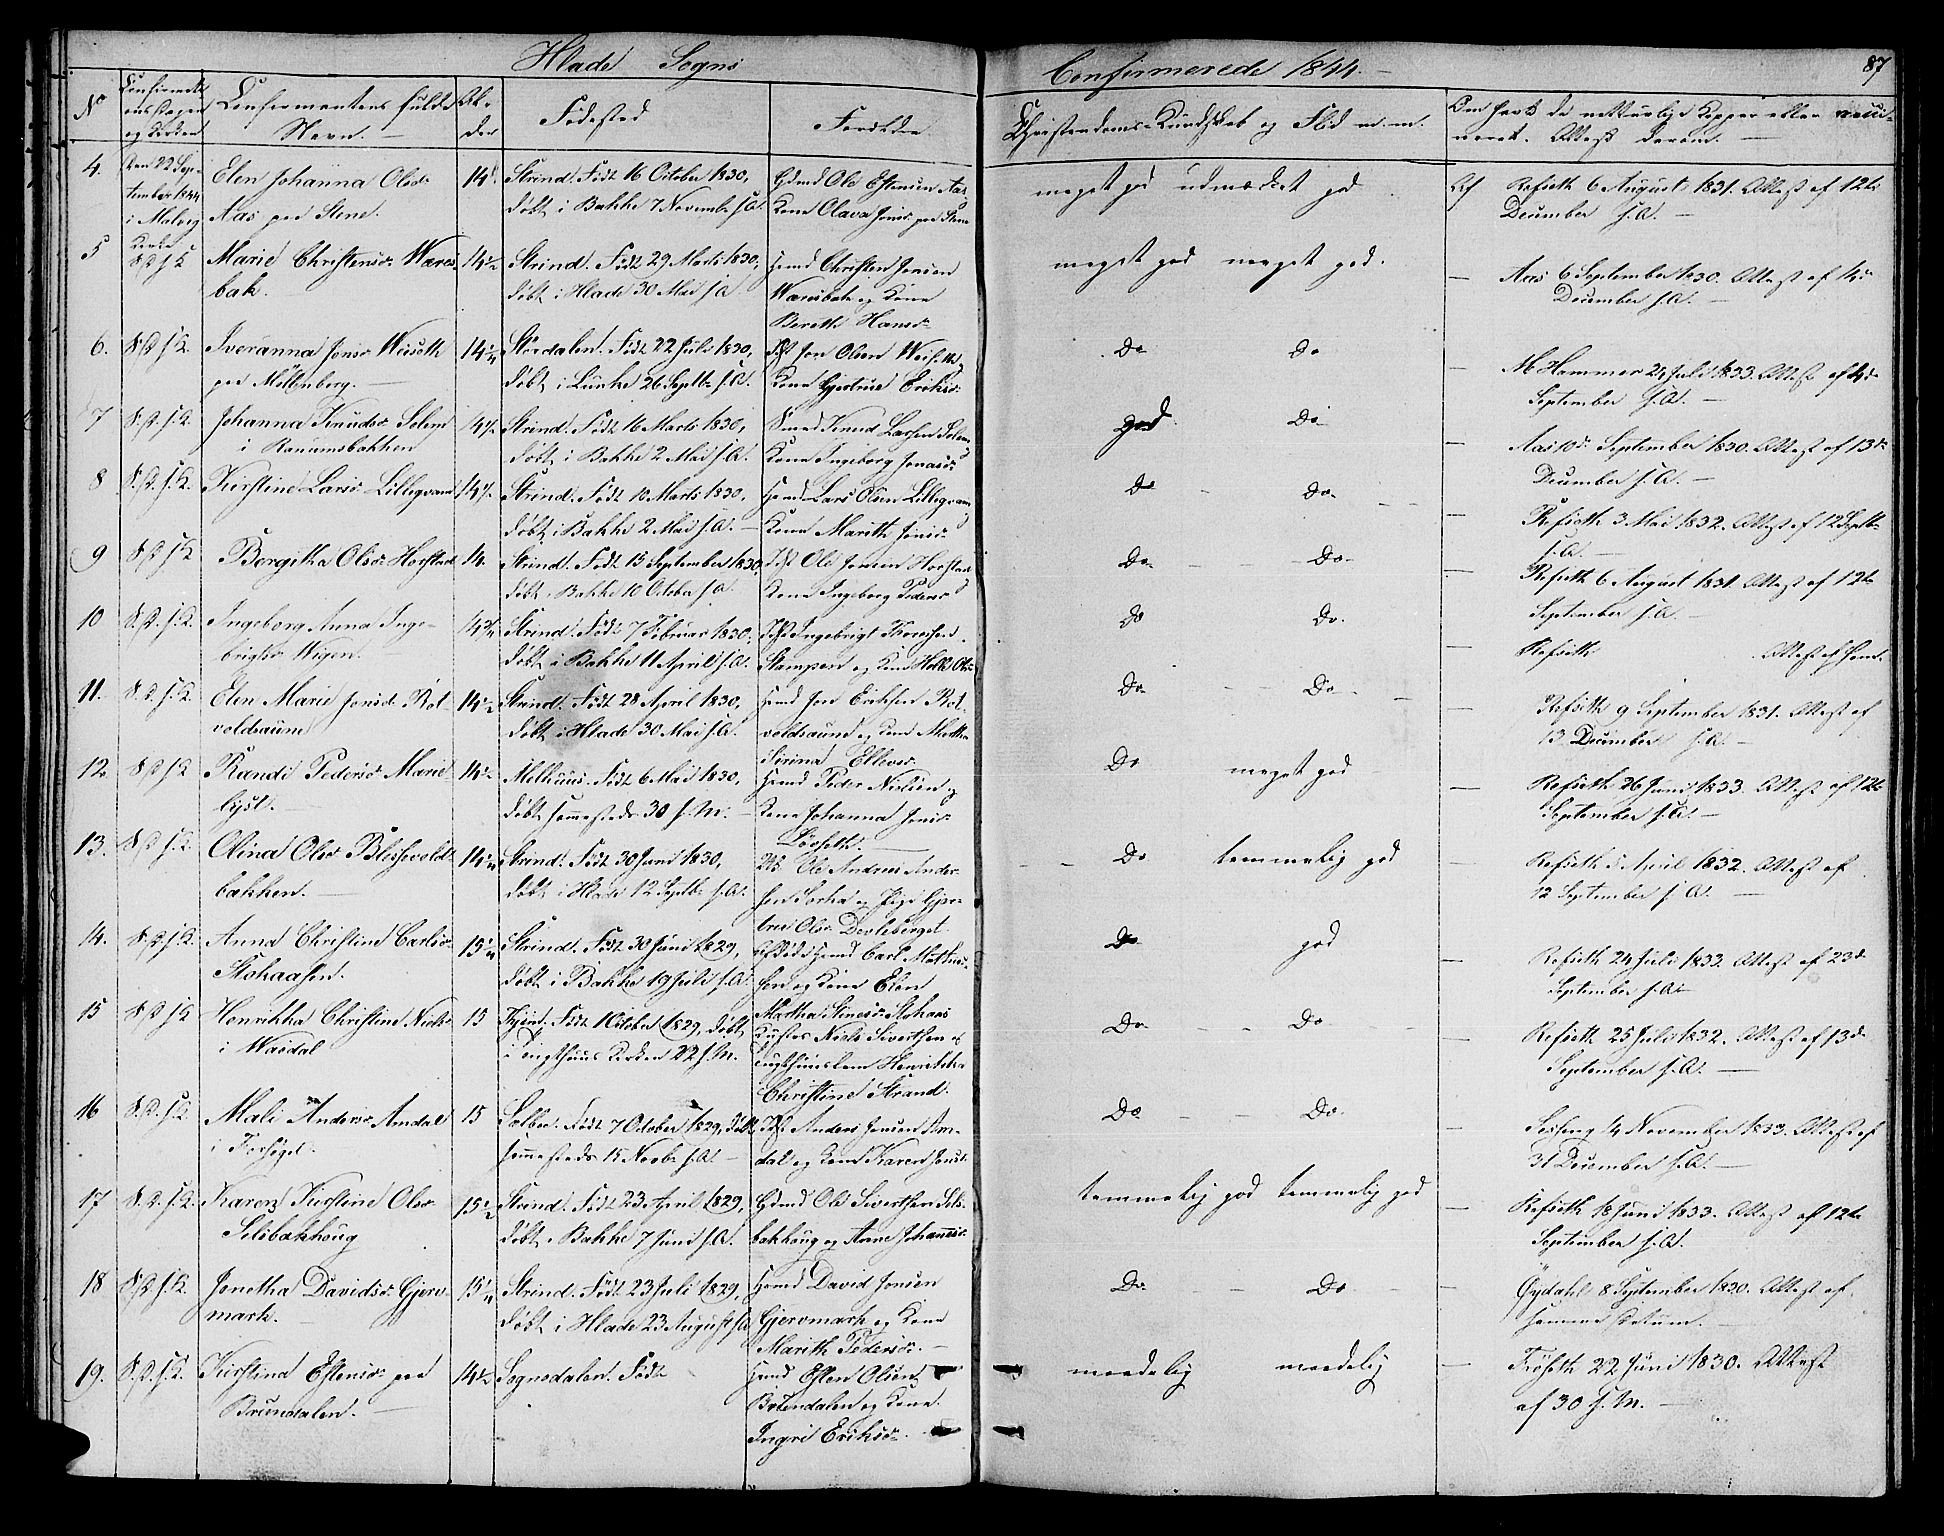 Hlade Sogns
Confirmerede 1844.
87
No
Confirmantens fulde
Navn.
Al-
der
Fødested
Forældre
Christendoms-Kundskab og Flid m. m.
Om havt de naturlige Kopper eller vacci-
neret. Attest derom.
4.
Den 22 Sep-
tember 1844
i Malvig
Kirke
Elen Johanna Olsdr
Aas paa Stene.
14
Strind. Født 16 October 1830,
døbt i Bakke 7 Novembr s. A.
Kone Olava Jonsdr paa Stene
meget god udmærket god
Refseth 6 August 1831. Attest af 12te
December s. A.
5
S. D. s. K.
Marie Christensdr Wæres-
bak.
14 1/2
Strind. Født 29 Marts 1830,
døbt i Hlade 30 Mai s. A.
Hmd Christen Jensen
Wæresbak og Kone
Bereth Hansdr
meget god meget god.
Aas 6 September 1830. Attest af
December s. A.
6.
S. D. s. K.
Iveranna Jonsdr Weiseth
paa Møllenberg.
14 1/4
Størdalen. Født 22 Juli 1830,
døbt i Lånke 26 Septbr s. A.
Jon Olsen Weiseth
Kone Gjertrue Eriksdr
Do Do
M Hammer 24 Juli 1833. Attest af
September s. A.
7
S. D. s. K.
Johanna Knudsdr Solem
i Ranumsbakken
14 1/2
Strind. Født 16 Marts 1830,
døbt i Bakke 2 Mai s. A.
Knud Larsen Solem
Kone Ingeborg Jonasdr
god Do
Aas 10de September 1830. Attest af 13de
December s. A.
8
S. D. s. K.
Kirstine Larsdr Lillegvam
14 1/2
Strind. Født 10 Marts 1830,
døbt i Bakke 2 Mai s. A.
Hmd Lars Olsen Lillegvam
Kone Marith Jonsdr
Do Do
Refseth 3 Mai 1832. Attest af 12 Septbr
s. A.
9
S. D. s. K.
Bergitha Olsdr Harstad
14.
Strind. Født 15 September 1830,
døbt i Bakke 10 October s. A.
Ole Jensen Harstad
Kone Ingeborg Pedersdr
Do Do
Refseth 6 August 1831. Attest af 12te
September s. A.
10
S. D. s. K.
Ingeborg Anna Inge-
brigtsdr Wigen.
Strind. Født 7 Februar 1830,
døbt i Bakke 11 April s. A.
Stampen og Kone
Do Do
Refseth Attest af
11.
S. D. s. K.
Elen Marie Jonsdr Rot-
voldsaune
14 1/2
Strind. Født 28 April 1830,
døbt i Hlade 30 Mai s. A.
Hmd Jon Eriksen Rot-
voldsaune og Kone Martha
Sirina Ellevsdr
Do Do
Refseth 9 September 1831. Attest af
13 December s. A.
12
S. D. s. K.
Randi Pedersdr Marie-
lyst.
14 1/2
Melhuus. Født 6 Mai 1830,
døbt sammesteds 30 s. M.
Hmd Peder Nielsen og
Kone Johanna Jonsdr
Do meget god
Refseth 26 Juni 1833. Attest af 12te
September s. A.
13.
S. D. s. K.
Olina Olsdr Blessevold-
bakken.
14 1/4
Strind. Født 30 Juni 1830,
døbt i Hlade 12 Septbr s. A.
Ole Andreas Ander-
sen Sorha og Pige Gjer-
true Olsdr Devleberget
Do temmelig god
Refseth 5 April 1832. Attest af
12 September s. A.
14.
S. D. s. K.
Anna Christine Carlsdr
Stokaasen.
15 1/4
Strind. Født 30 Juni 1829,
døbt i Bakke 19 Juli s. A.
Afdøde Hmd Carl Mathias-
sen og Kone Elen
Martha Stinesdr Stokaas
Do god
Refseth 24 Juli 1833. Attest af 23de
September s. A.
15
S. D. s. K.
Henrikka Christine Nielsdr
i Wasdal
15
Født 1 October 1829, døbt
i Tugthuus Kirken 22 s. M.
Niels Sivertsen og
Tugthuuslem Henrikka
Christine Strand.
Do Do
Refseth 25 Juli 1832. Attest af 13de
September s. A.
16
S. D. s. K.
Mali Andersdr Amdal
i Forsøget.
15
Selboe. Født 7 October 1829, døbt
sammesteds 15 Novbr s. A.
Anders Jensen Am-
dal og Kone Karen Jonsdr
Do Do
14 November 1833. Attest af
31 December s. A.
17
S. D. s. K.
Karen Kirstine Olsdr
Silibakhaug
15 1/2
Strind. Født 23 April 1829,
døbt i Bakke 7 Juni s. A.
Ole Sivertsen Sili-
bakhaug og Anne Johannesdr
temmelig god temmelig god
Refseth 18 Juni 1833. Attest af 12te
September s. A.
18
S. D. s. K.
Jonetha Davidsdr Gjerv-
mark.
15 1/4
Strind. Født 23 Juli 1829,
døbt i Hlade 23 August s. A.
Hmd David Jonsen
Gjervmark og Kone
Marith Pedersdr.
Do Do
Øydahl 8 September 1830. Attest af
samme Datum.
19.
S. D. s. K.
Kirstina Estensdr paa
Brundalen.
14 1/2
Sognedalen. Født
Hmd Esten Olsen
Brundalen og Kone
Ingri Eriksdr.
maadelig maadelig
Frøseth 22 Juni 1830. Attest
af 30 s. M.